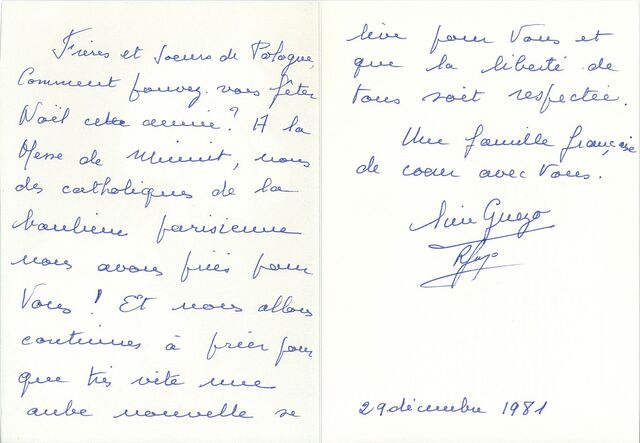 Frères et Soeurs de Pologne,
Comment pouvez vous fêter
Noël cette année? A la
Messe de Minuit, nous
des catholiques de la
banlieue parisienne
nous avons priés pour
Vous! Et nous allons
continuer à prier pour
que très vite une
aube nouvelle se
lève pour Vous et
que la liberté de
tous soit respectée.
Une famille française
de coeur avec Vous.
Guezo
29 décembre 1981